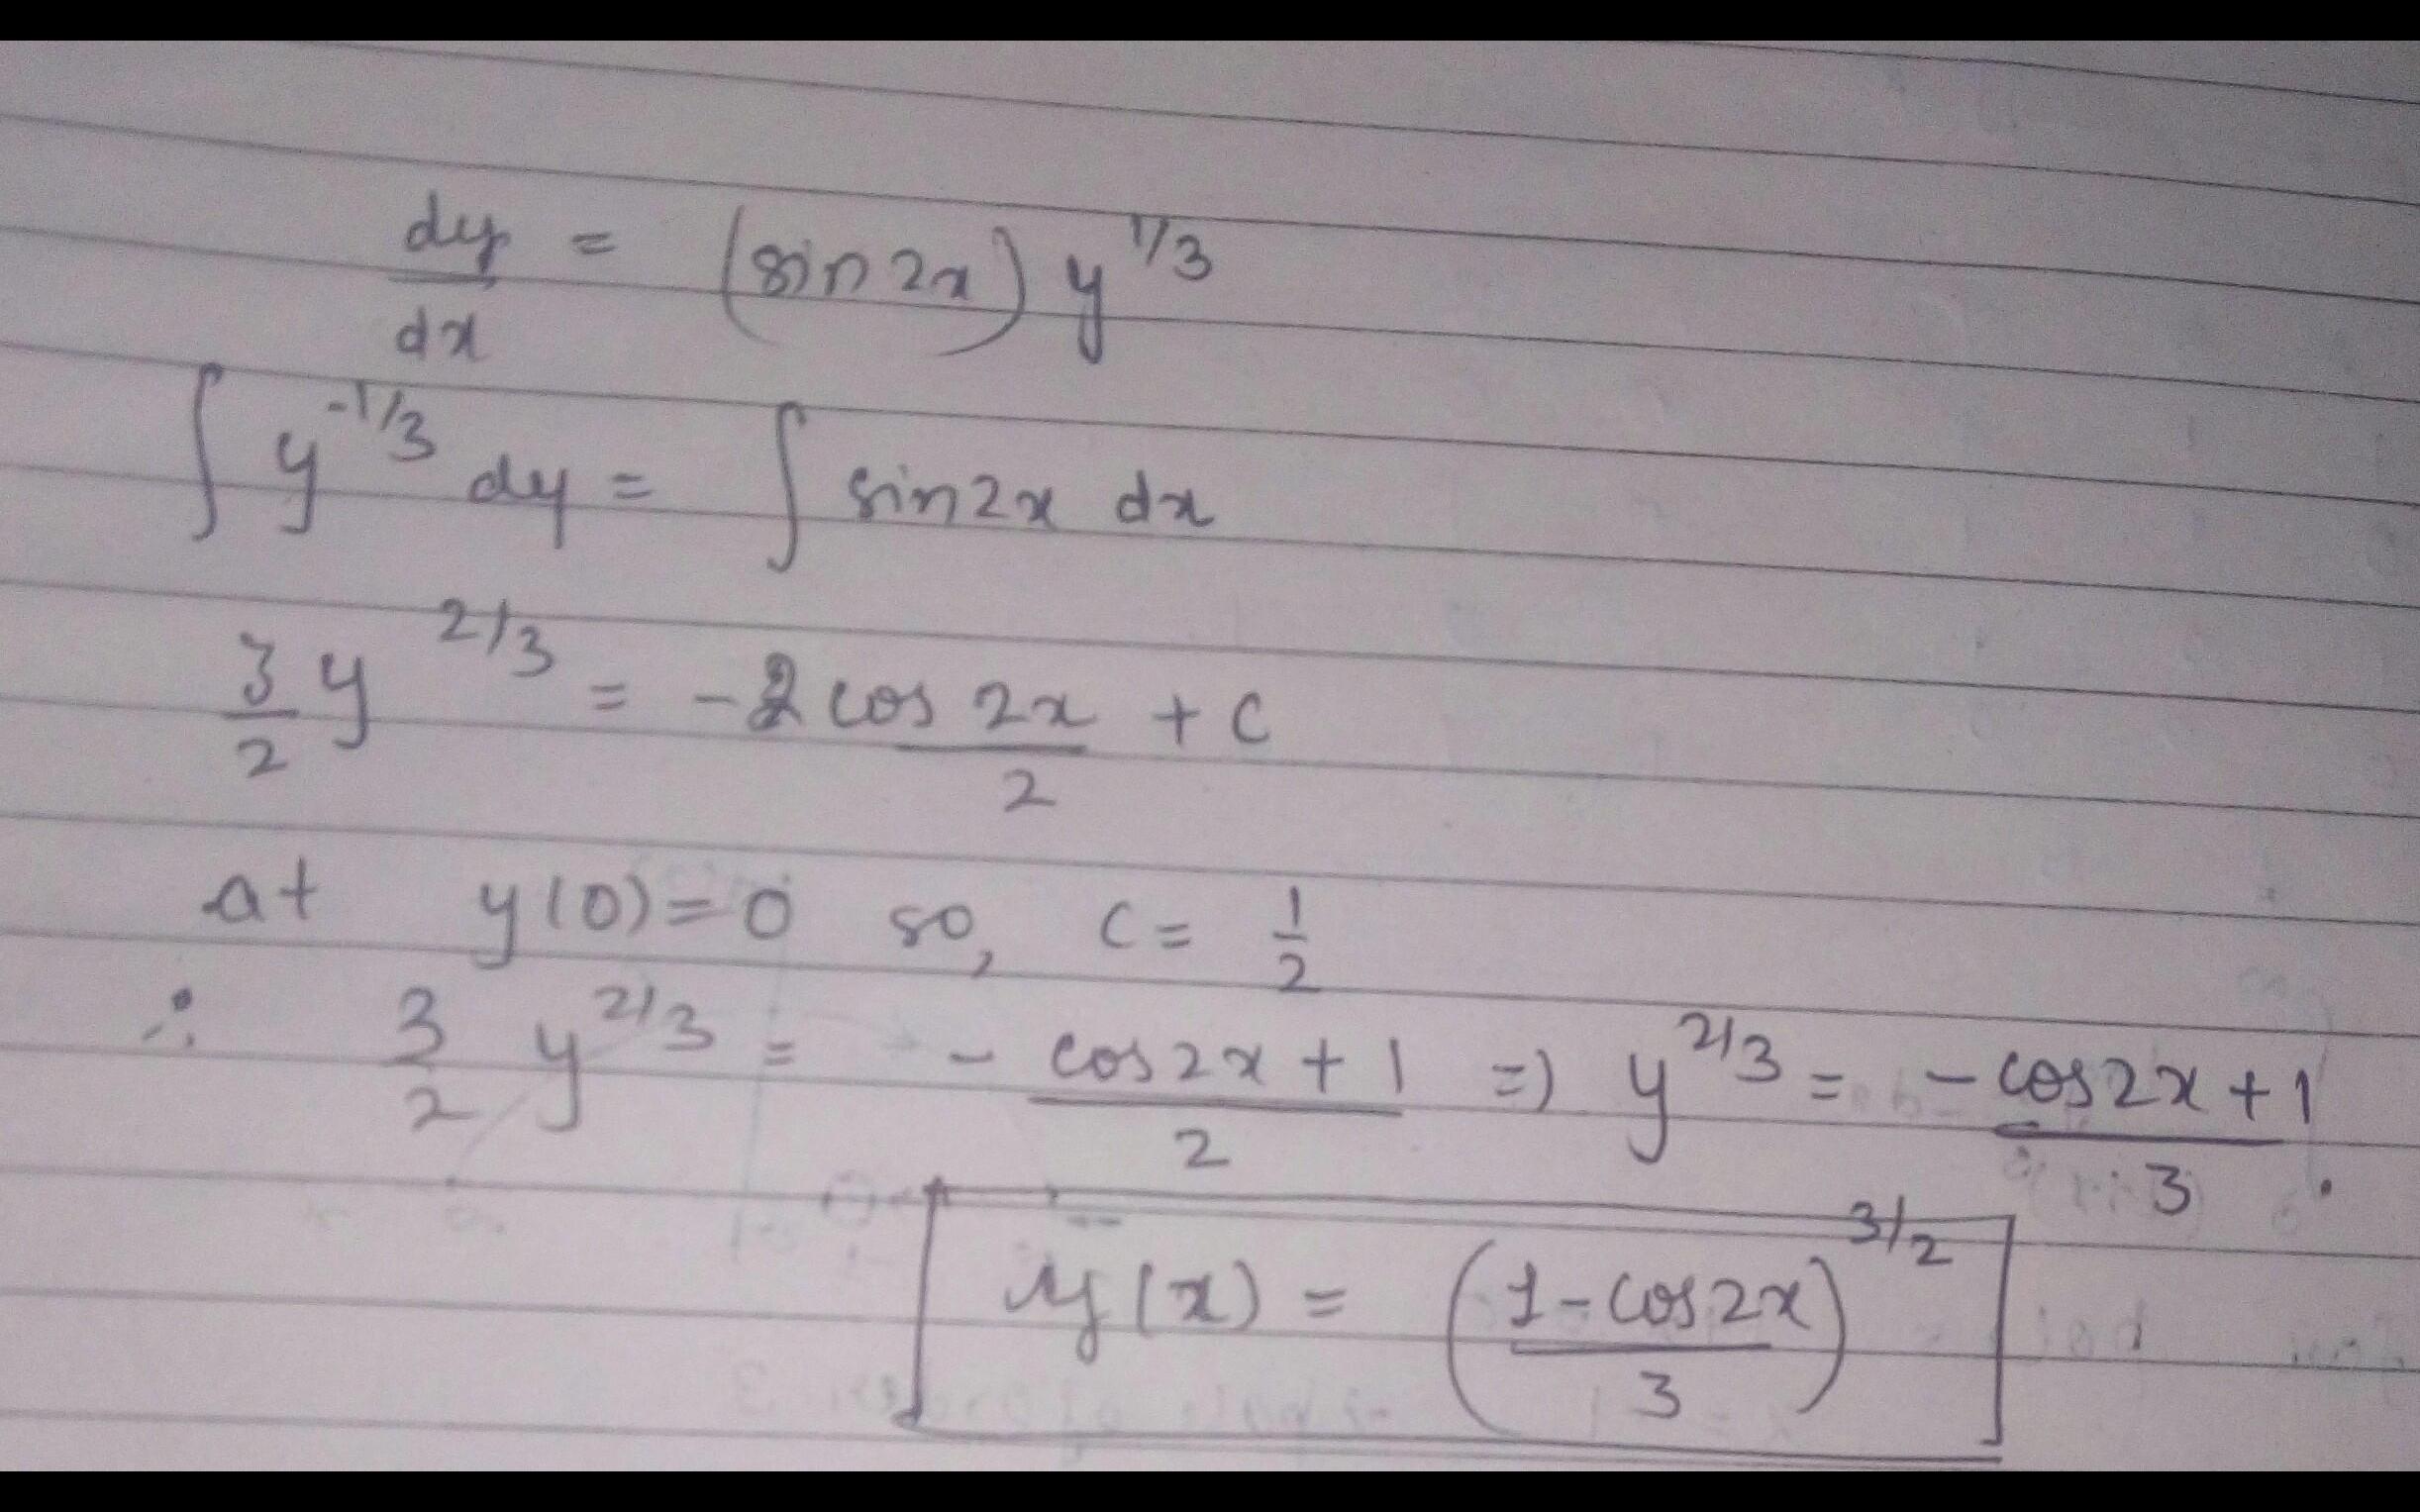 dy/dx = (sin 2x) y^1/3
∫ y^-1/3 dy = ∫ sin2x dx
3/2 y^2/3 = - cos 2x / 2 + c
at y(0)=0 so, c = 1/2
∴ 3/2 y^2/3 = - cos2x + 1 / 2 => y^2/3 = - cos2x + 1 / 3 .
y(x) = (1 - cos2x / 3)^3/2